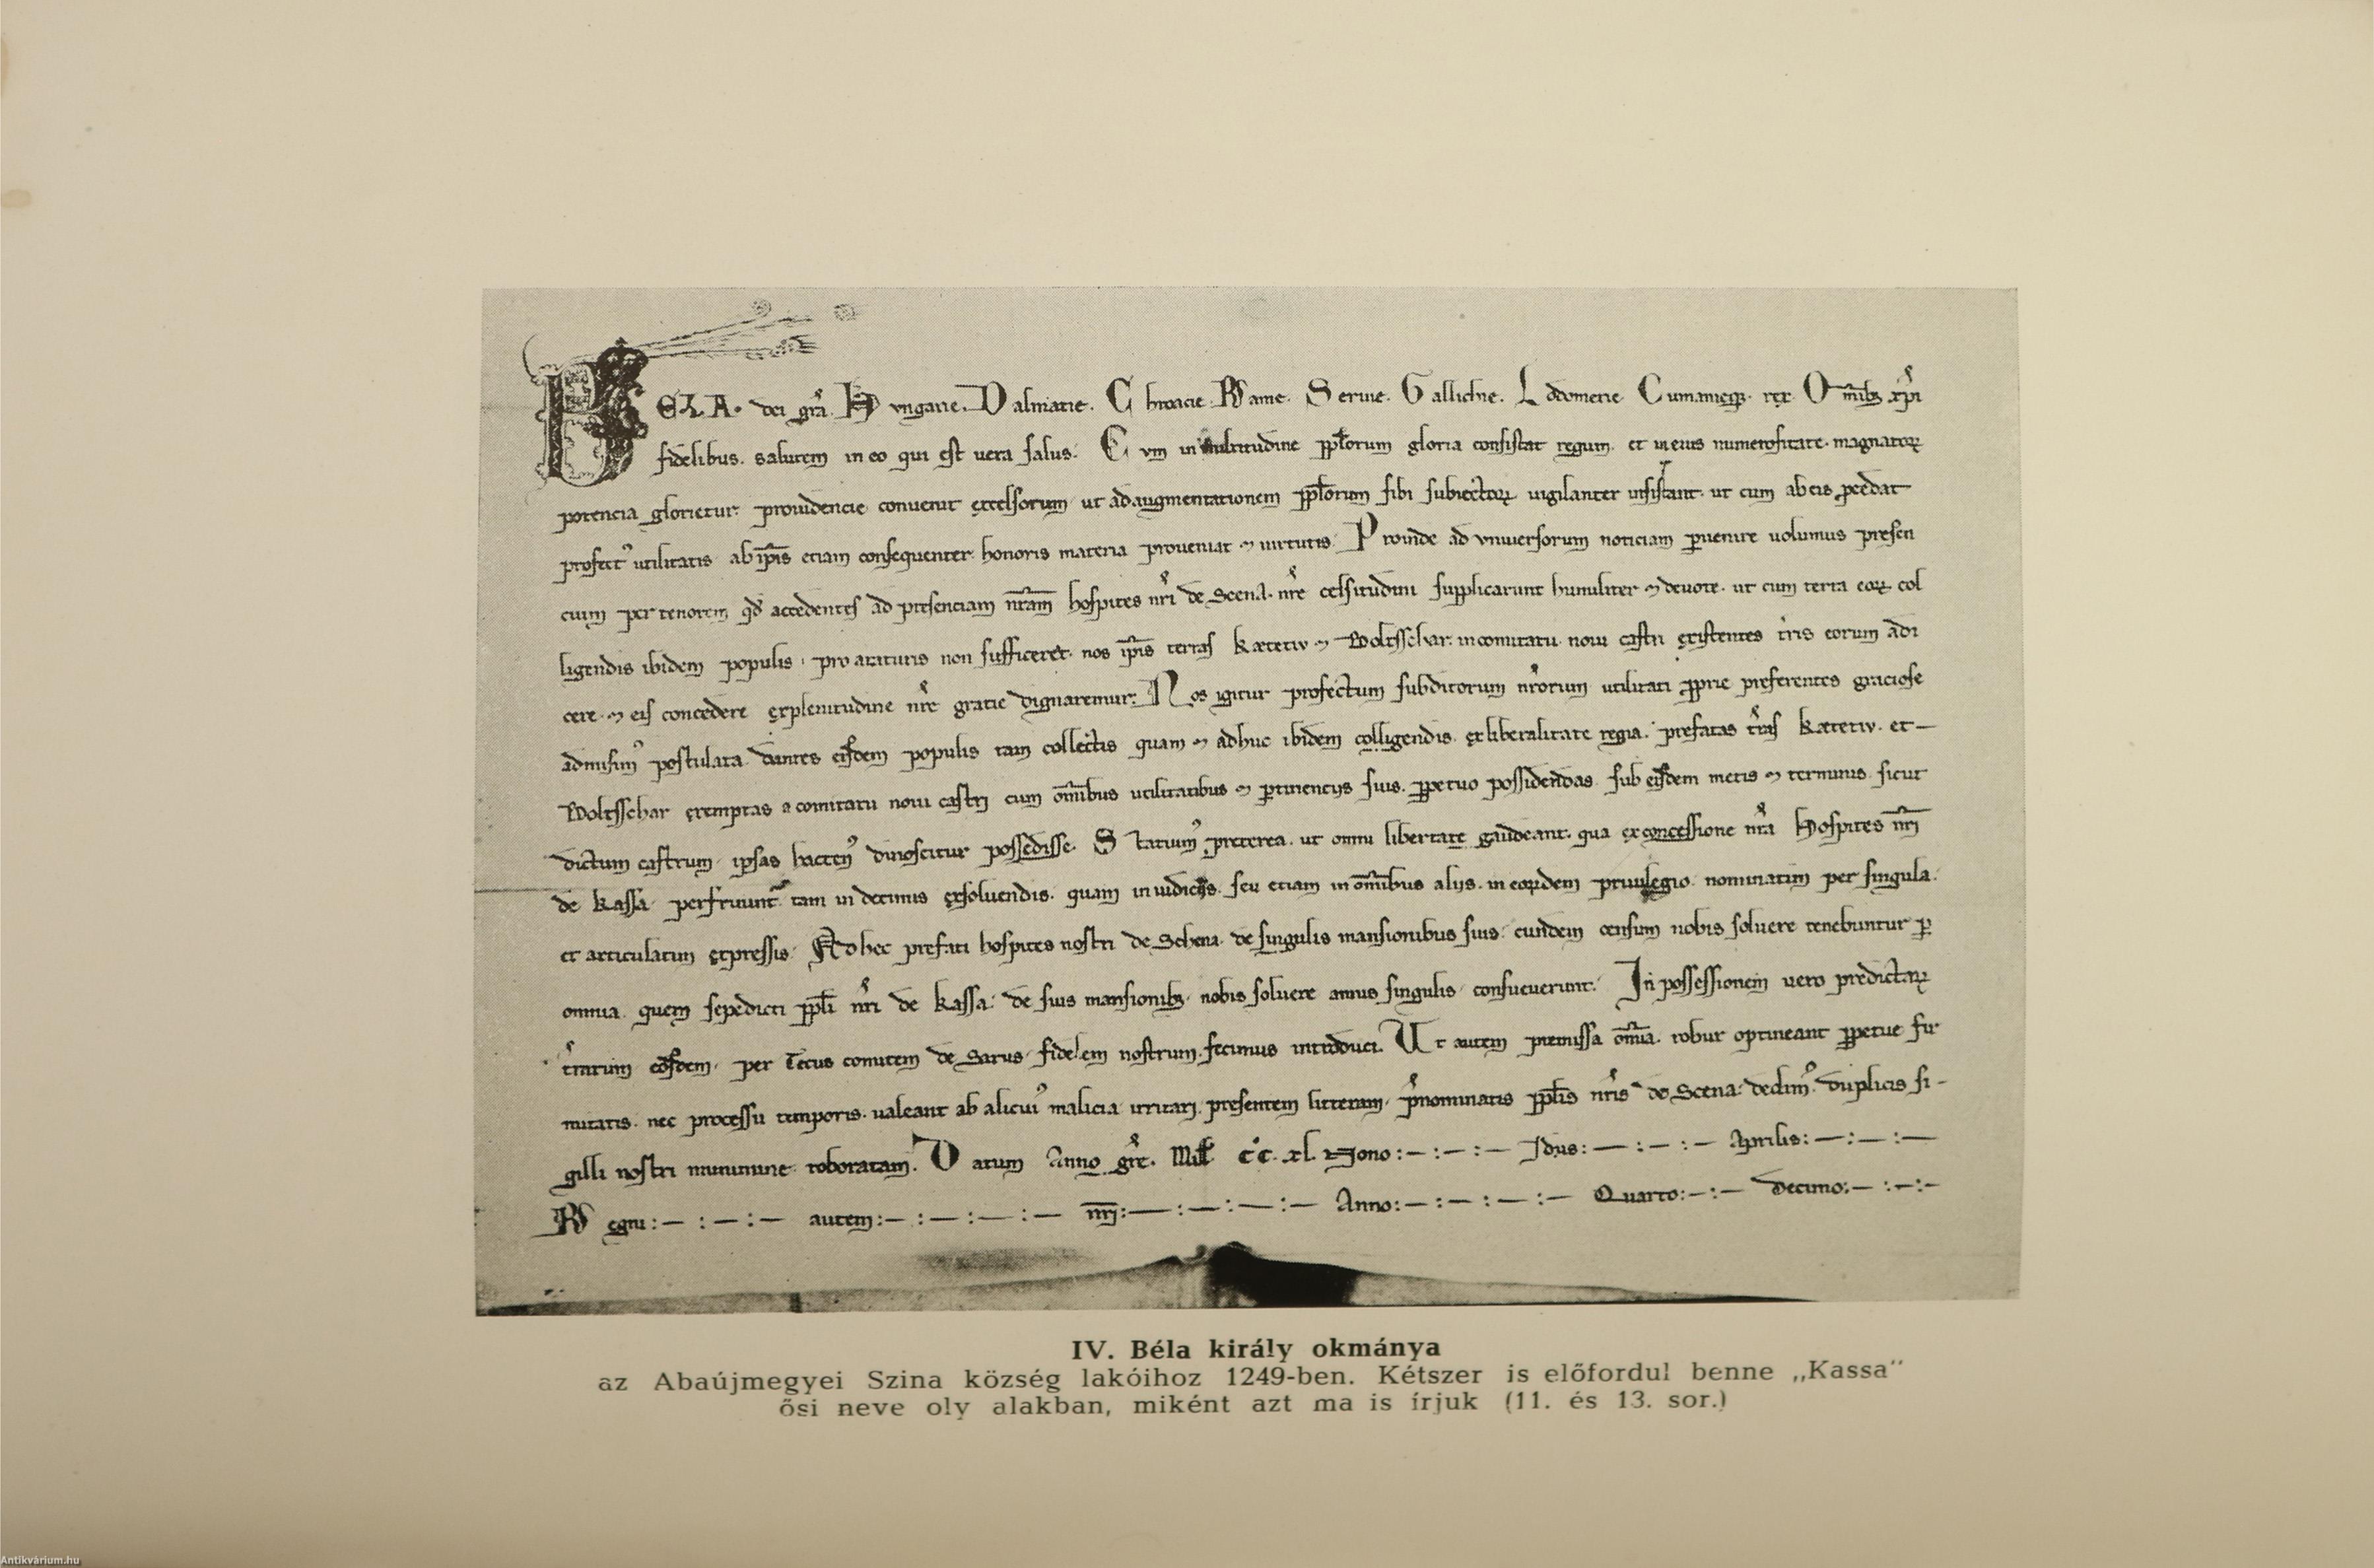 BELA. dei gr̃a. Hungarie. Dalmatie. Chroacie. Rame. Seruie. Gallicie. Lodomerie. Cumanieqȝ. rex. Om̃ibȝ xp̃i
fidelibus. salutem in eo qui est uera salus. Cum in multitudine pp̃lorum gloria consistat regum. et in eius numerositate. magnatorꝝ
potencia glorietur. prouidencie conuenit excelsorum ut ad augmentationem pp̃lorum sibi subiectorꝝ uigilanter insistant. ut cum ab eis ꝓcedat
profectꝰ utilitatis ab ip̃is etiam consequenter. honoris materia proueniat ⁊ uirtutis. Proinde ad vniuersorum noticiam ꝑuenire uolumus presen
cium per tenorem qđ accedentes ad presenciam nr̃am hospites nr̃i de Scena. nr̃e celsitudini supplicarunt humiliter ⁊ deuote. ut cum terra eoꝝ col
ligendis ibidem populis, pro araturis non sufficeret. nos ip̃is terras Ketetiv ⁊ Boltsschar. in comitatu noui castri existentes t̃ris eorum adi
cere. ⁊ eis concedere ex plenitudine nr̃e gratie dignaremur. Nos igitur profectum subditorum nr̃orum utilitati ꝓprie preferentes graciose
admisimꝰ postulata. dantes eisdem populis tam collectis quam ⁊ adhuc ibidem colligendis. ex liberalitate regia. prefatas t̃ras Ketetiv. et —
Boltsschar exemptas a comitatu noui castri cum om̃ibus utilitatibus ⁊ ꝑtinencijs suis. ꝑpetuo possidendas. sub eisdem metis ⁊ terminis. sicut
dictum castrum. ipsas hactenꝰ dinoscitur possedisse. Statuimꝰ preterea. ut omni libertate gaudeant. qua ex concessione nr̃a Hospites nr̃i
de Kassa perfruunt̃. tam in decimis exsoluendis. quam in iudicijs. seu etiam in om̃ibus alijs. in eoꝝdem priuilegio nominatim per singula.
et articulatim expressis. Ad hec prefati hospites nostri de Schena. de singulis mansionibus suis. eundem censum nobis soluere tenebuntur ꝑ
omnia. quem sepedicti pp̃li nr̃i de Kassa. de suis mansionibȝ. nobis soluere annis singulis consueuerunt. In possessionem uero predictaꝝ
t̃rarum eosdem. per Tecus comitem de Sarus fidelem nostrum. fecimus introduci. Ut autem premissa om̃ia. robur optineant ꝑpetue fir
mitatis. nec processu temporis. ualeant ab alicuiꝰ malicia irritari. presentem litteram. p̃nominatis pp̃lis nr̃is de Scena. dedimꝰ. duplicis si-
gilli nostri munimine roboratam. Datum Anno gr̃e. Mill̃. cc̊. xl. Nono :—:—:— Idus :—:—:— Aprilis: —:—:—
Regni :—:—:— autem :—:—:—:— nr̃i: —:—:—:— Anno :—:—:—:— Quarto :—:— decimo: —:—:-
IV. Béla király okmánya
az Abaújmegyei Szina község lakóihoz 1249-ben. Kétszer is előfordul benne „Kassa”
ősi neve oly alakban, miként azt ma is írjuk (11. és 13. sor.)
Antikvárium.hu